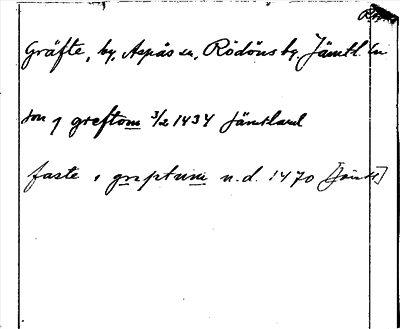 Gräfte, by, Aspås sn, Rödöns tg, Jämtl. län
son j greftom 3/2 1434 Jämtland
faste i græptum n.d. 1470 [Jämtl]